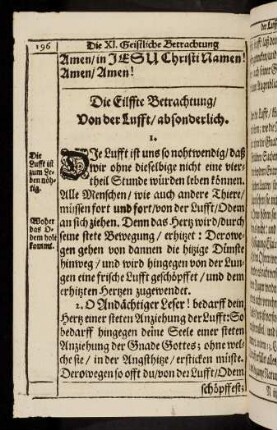 196
Die XI. Geistliche Betrachtung
Amen/ in JESU Christi Namen!
Amen/ Amen!
Die Eilffte Betrachtung/
Von der Lufft/ absonderlich.
1.
Die Lufft ist zum Leben nöhtig.
DIe Lufft ist uns so nohtwendig/ daß
wir ohne dieselbige nicht eine vier-
theil Stunde würden leben können.
Alle Menschen/ wie auch andere Thiere/
müssen fort und fort/ von der Lufft/ Odem
Woher das Odem holt kommt.
an sich ziehen. Denn das Hertz wird/ durch
seine stete Bewegung/ erhitzet: Derowe-
gen gehen von dannen die hitzige Dünste
hinweg/ und wird hingegen von der Lun-
gen eine frische Lufft geschöpffet/ und dem
erhitzten Hertzen zugewendet.
2. O Andächtiger Leser! bedarff dein
Hertz einer steten Anziehung der Lufft: So
bedarff hingegen deine Seele einer steten
Anziehung der Gnade Gottes; ohne wel-
che sie/ in der Angsthitze/ ersticken müste.
Derowegen so offt du/ von der Lufft/ Odem
schöpffest;